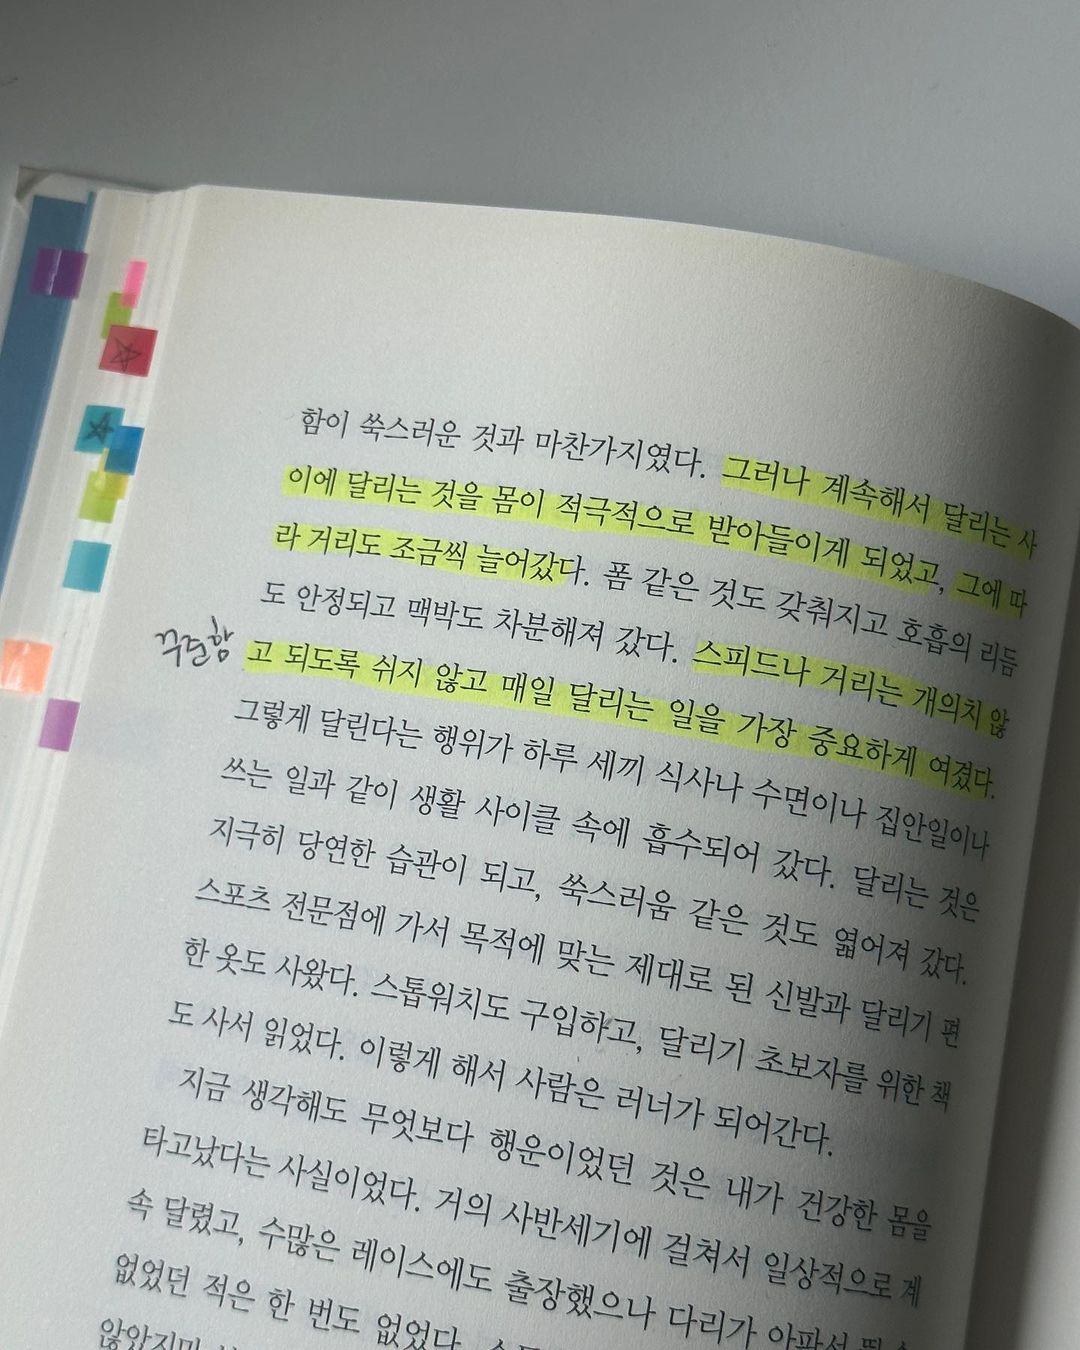 함이 쑥스러운 것과 마찬가지였다. 그러나 계속해서 달리는 사
이에 달리는 것을 몸이 적극적으로 받아들이게 되었고, 그에 따
라 거리도 조금씩 늘어갔다. 폼 같은 것도 갖춰지고 호흡의 리듬
도 안정되고 맥박도 차분해져 갔다. 스피드나 거리는 개의치 않
꾸준함
고 되도록 쉬지 않고 매일 달리는 일을 가장 중요하게 여겼다.
그렇게 달린다는 행위가 하루 세끼 식사나 수면이나 집안일이나
쓰는 일과 같이 생활 사이클 속에 흡수되어 갔다. 달리는 것은
지극히 당연한 습관이 되고, 쑥스러움 같은 것도 엷어져 갔다.
스포츠 전문점에 가서 목적에 맞는 제대로 된 신발과 달리기 편
한 옷도 사왔다. 스톱워치도 구입하고, 달리기 초보자를 위한 책
도 사서 읽었다. 이렇게 해서 사람은 러너가 되어간다.
지금 생각해도 무엇보다 행운이었던 것은 내가 건강한 몸을
타고났다는 사실이었다. 거의 사반세기에 걸쳐서 일상적으로 계
속 달렸고, 수많은 레이스에도 출장했으나 다리가 아파서
없었던 적은 한 번도 없었다.
않았지만